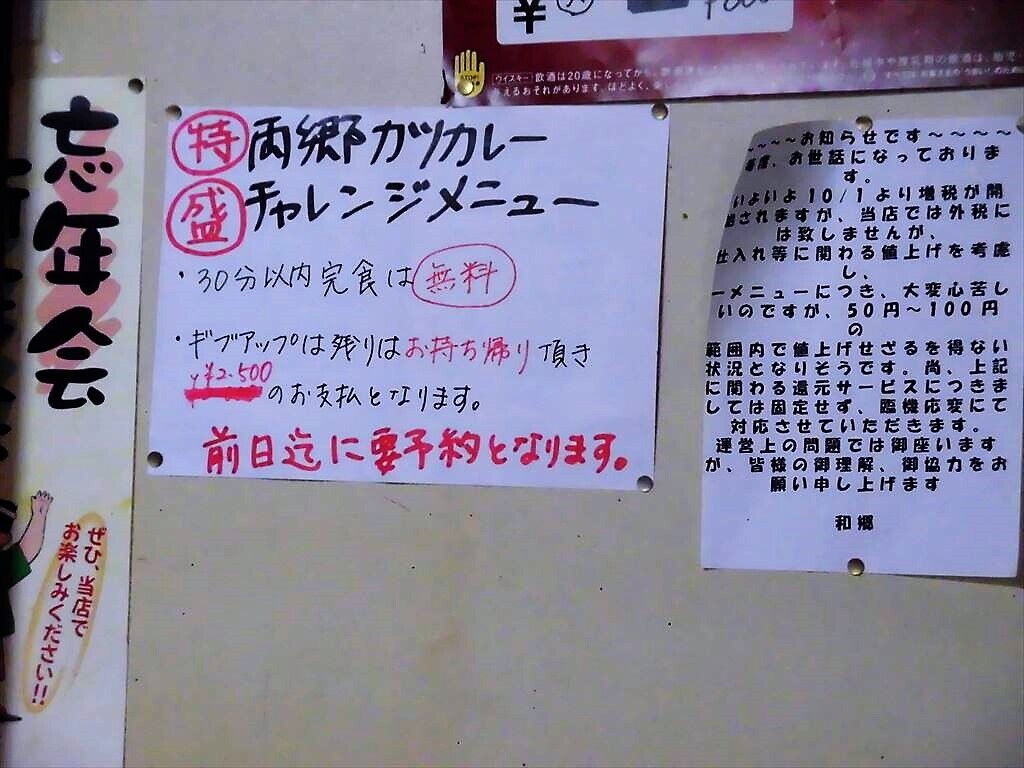 忘年会
ぜひ、当店で
お楽しみください!!
特盛
両郷カツカレー
チャレンジメニュー
・30分以内完食は無料
・ギブアップは残りはお持ち帰り頂き
¥2.500のお支払となります。
前日迄に要予約となります。
¥
STOP!
ウイスキー 飲酒は20歳になってから。
えるおそれがあります。ほどよく、
~~~~お知らせです~~~~
毎度、お世話になっておりま
す。
いよいよ10/1より増税が開
始されますが、当店では外税に
は致しませんが、
仕入れ等に関わる値上げを考慮
し、
一メニューにつき、大変心苦し
いのですが、50円~100円
の
範囲内で値上げせざるを得ない
状況となりそうです。尚、上記
に関わる還元サービスにつきま
しては固定せず、臨機応変にて
対応させていただきます。
運営上の問題では御座います
が、皆様の御理解、御協力をお
願い申し上げます
和郷